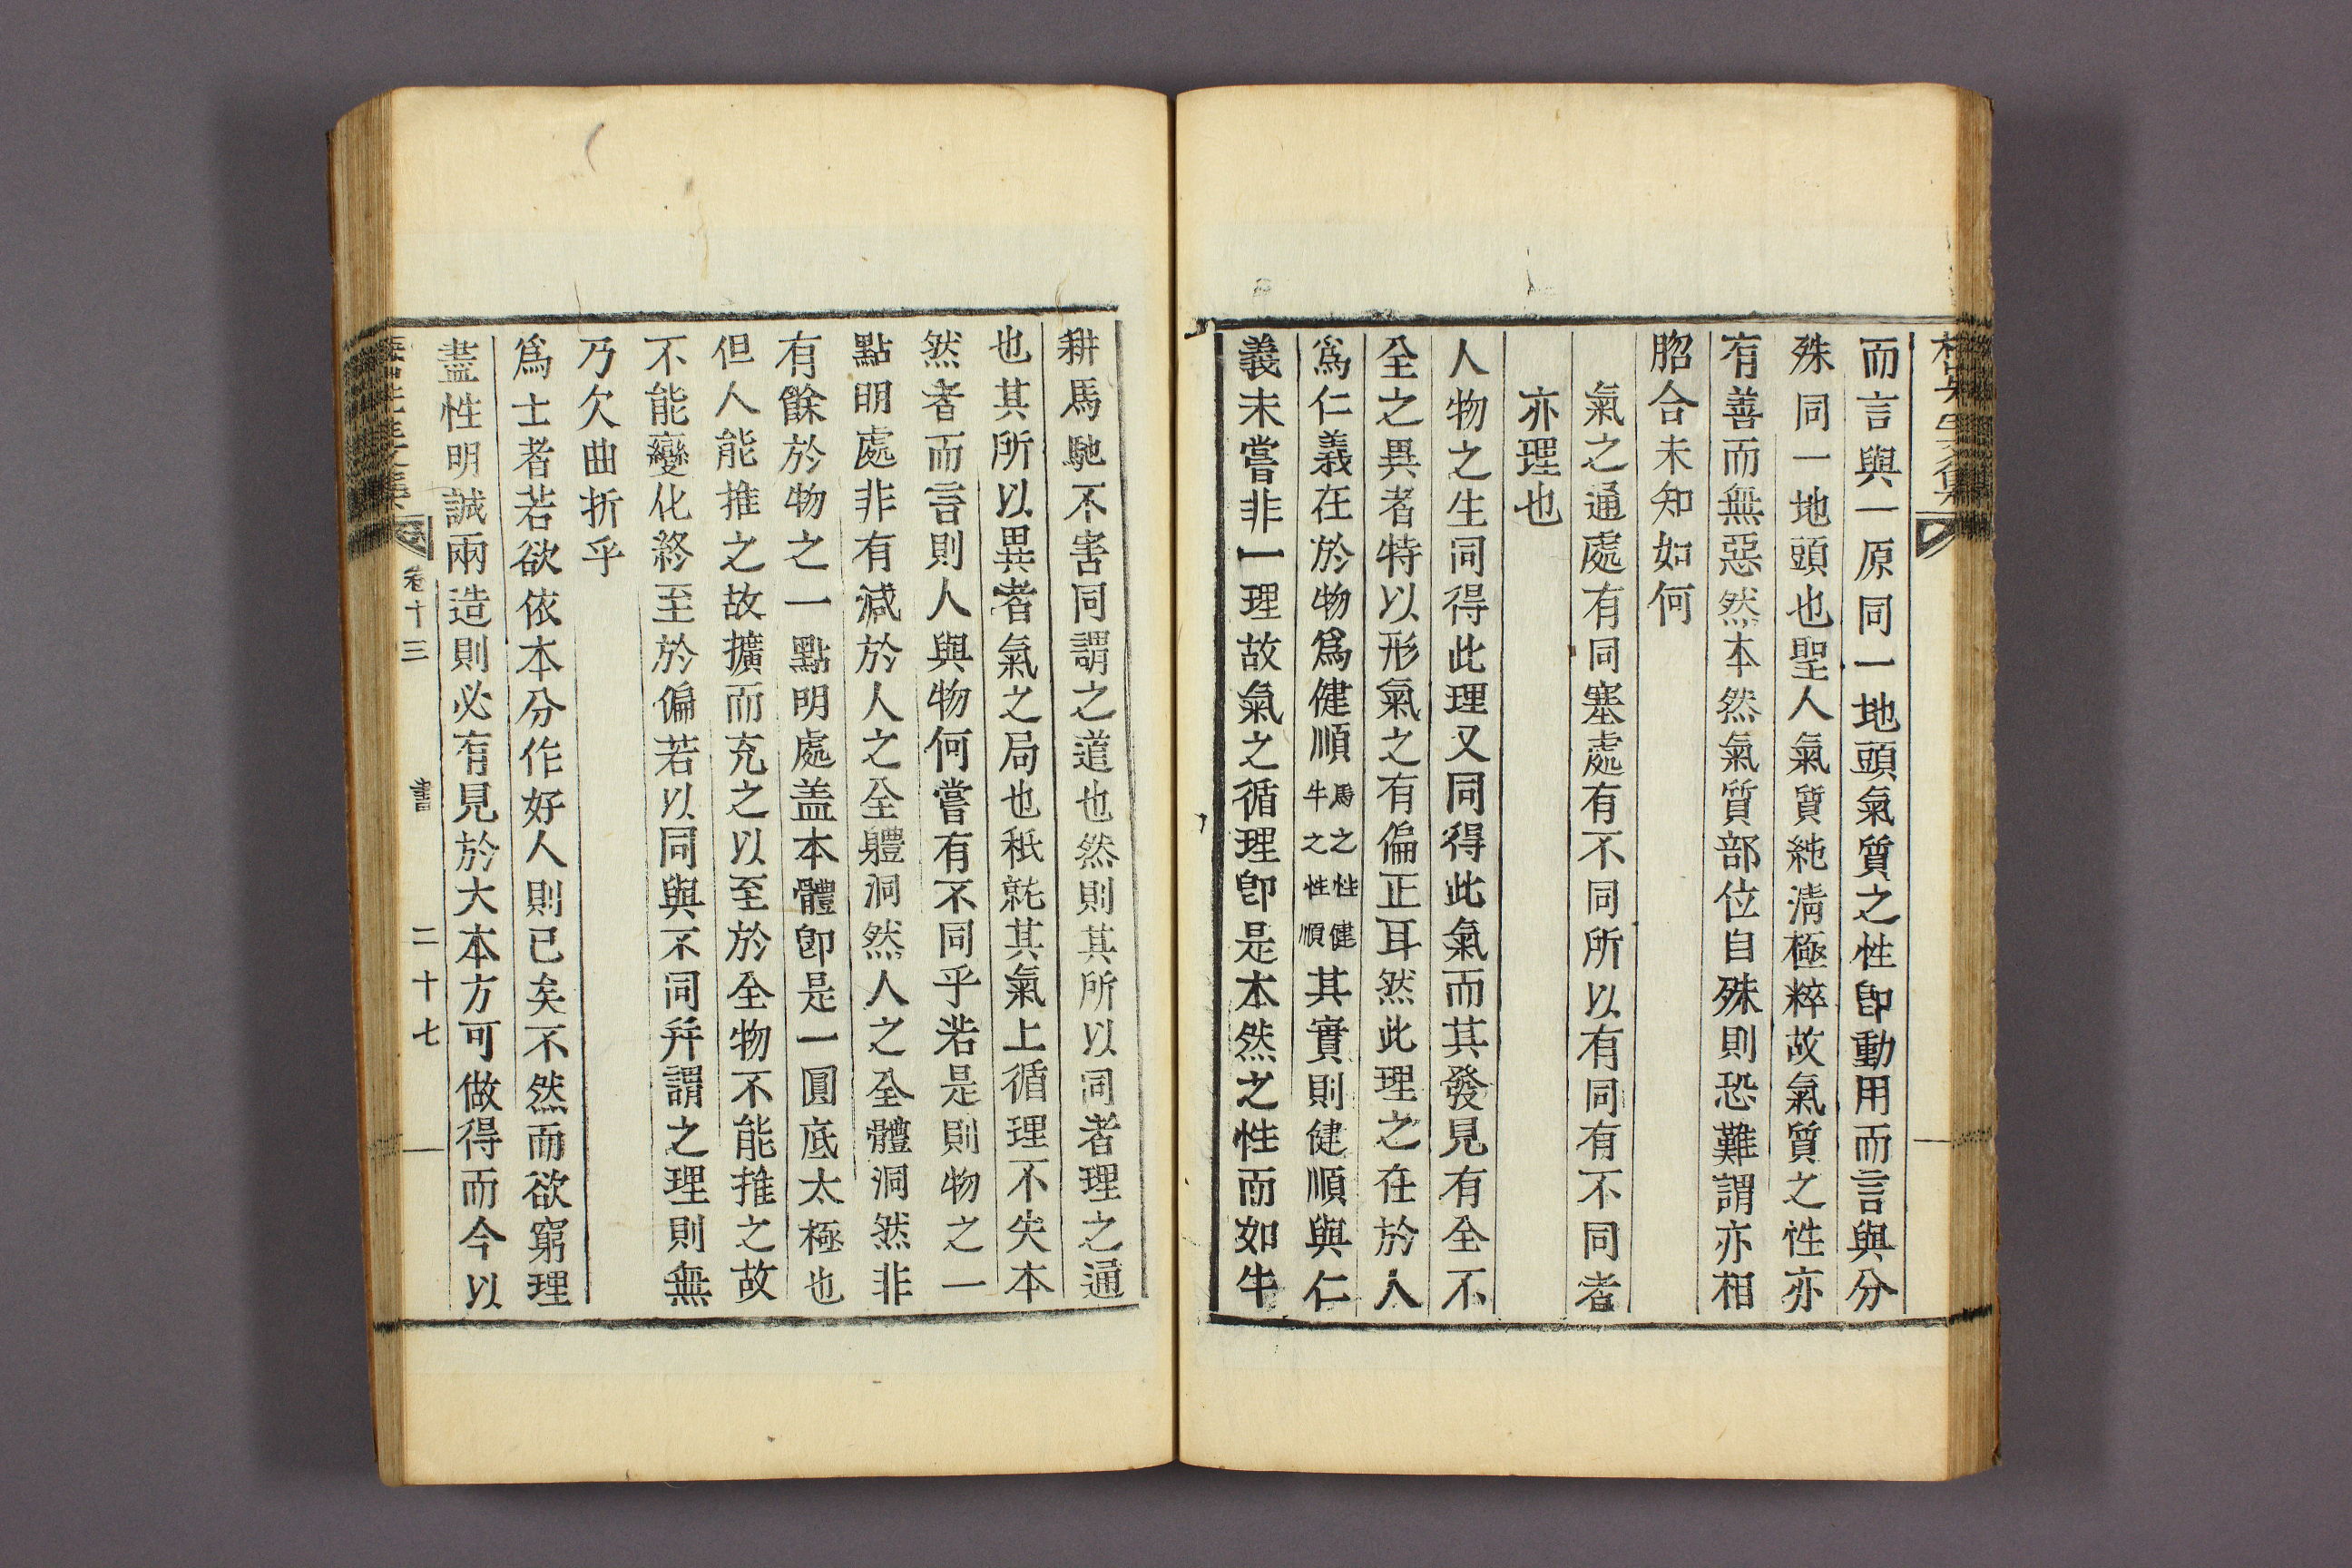 而言與一原同一地頭氣質之性卽動用而言與分
殊同一地頭也聖人氣質純淸極粹故氣質之性亦
有善而無惡然本然氣質部位自殊則恐難謂亦相
脗合未知如何
氣之通處有同塞處有不同所以有同有不同者
亦理也
人物之生同得此理又同得此氣而其發見有全不
全之異者特以形氣之有偏正耳然此理之在於人
爲仁義在於物爲健順馬之性健牛之性順其實則健順與仁
義未嘗非一理故氣之循理卽是本然之性而如牛
耕馬馳不害同謂之道也然則其所以同者理之通
也其所以異者氣之局也秪就其氣上循理不失本
然者而言則人與物何嘗有不同乎若是則物之一
點明處非有減於人之全體洞然人之全體洞然非
有餘於物之一點明處盖本體卽是一圓底太極也
但人能推之故擴而充之以至於全物不能推之故
不能變化終至於偏若以同與不同幷謂之理則無
乃欠曲折乎
爲士者若欲依本分作好人則已矣不然而欲窮理
盡性明誠兩造則必有見於大本方可做得而今以
卷十三
書
二十七